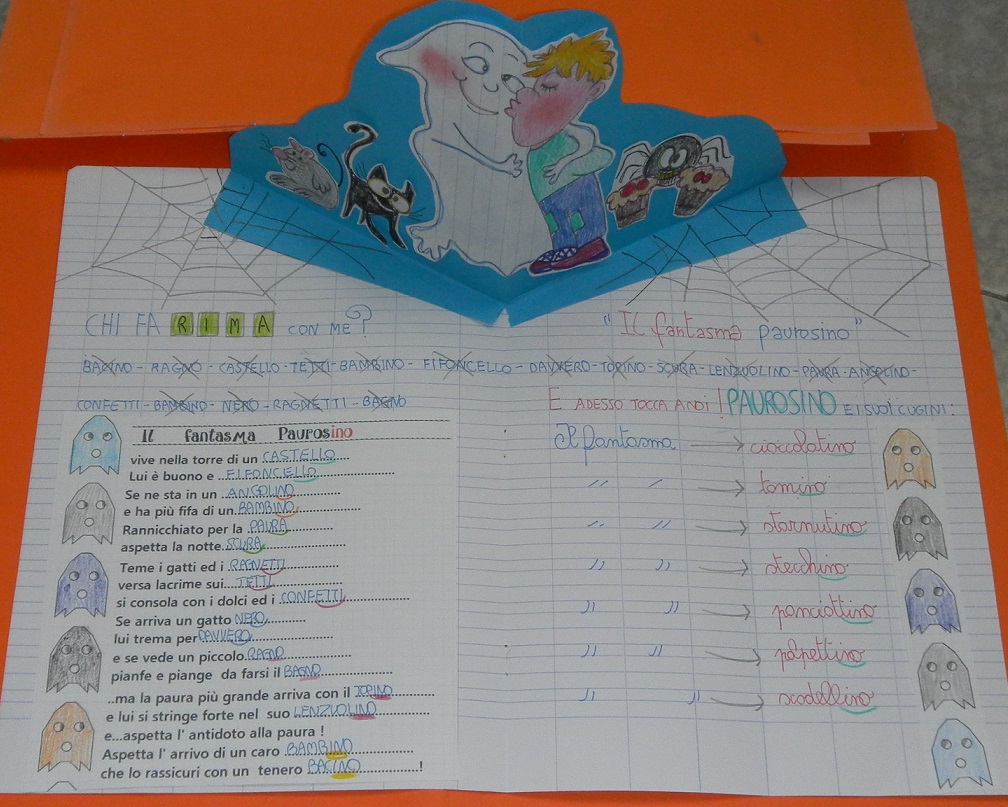 CHI FA RIMA CON ME?
BACINO - RAGNO - CASTELLO - TETTI - BAMBINO - FIFONCELLO - DAVVERO - TOPINO - SCURA - LENZUOLINO - PAURA - ANGOLINO -
CONFETTI - BAMBINO - NERO - RAGNETTI - BAGNO
Il fantasma Paurosino
vive nella torre di un CASTELLO
Lui è buono e FIFONCELLO
Se ne sta in un ANGOLINO
e ha più fifa di un BAMBINO
Rannicchiato per la PAURA
aspetta la notte SCURA
Teme i gatti ed i RAGNETTI
versa lacrime sui TETTI
si consola con i dolci ed i CONFETTI
Se arriva un gatto NERO
lui trema per DAVVERO
e se vede un piccolo RAGNO
pianfe e piange da farsi il BAGNO
..ma la paura più grande arriva con il TOPINO
e lui si stringe forte nel suo LENZUOLINO
e...aspetta l' antidoto alla paura !
Aspetta l' arrivo di un caro BAMBINO
che lo rassicuri con un tenero BACINO !
"Il fantasma paurosino"
E ADESSO TOCCA A NOI! PAUROSINO E I SUOI CUGINI:
Il fantasma → cioccolatino
" " → tomino
" " → starnutino
" " → stecchino
" " → panciottino
" " → papettino
" " → scodellino